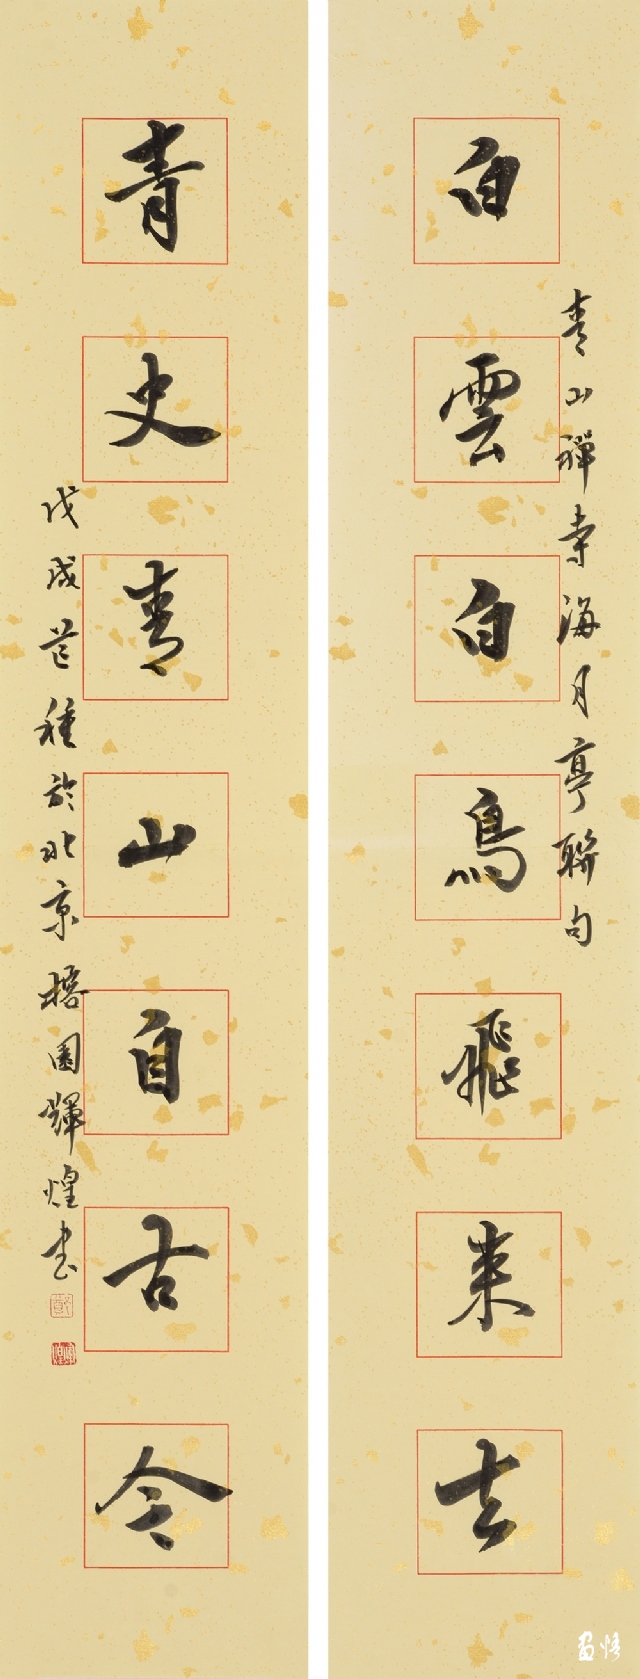 白雲白鳥飛來去
青山禪寺海月亭聯句
青史青山自古今
戊戌芒種於北京園輝煌書